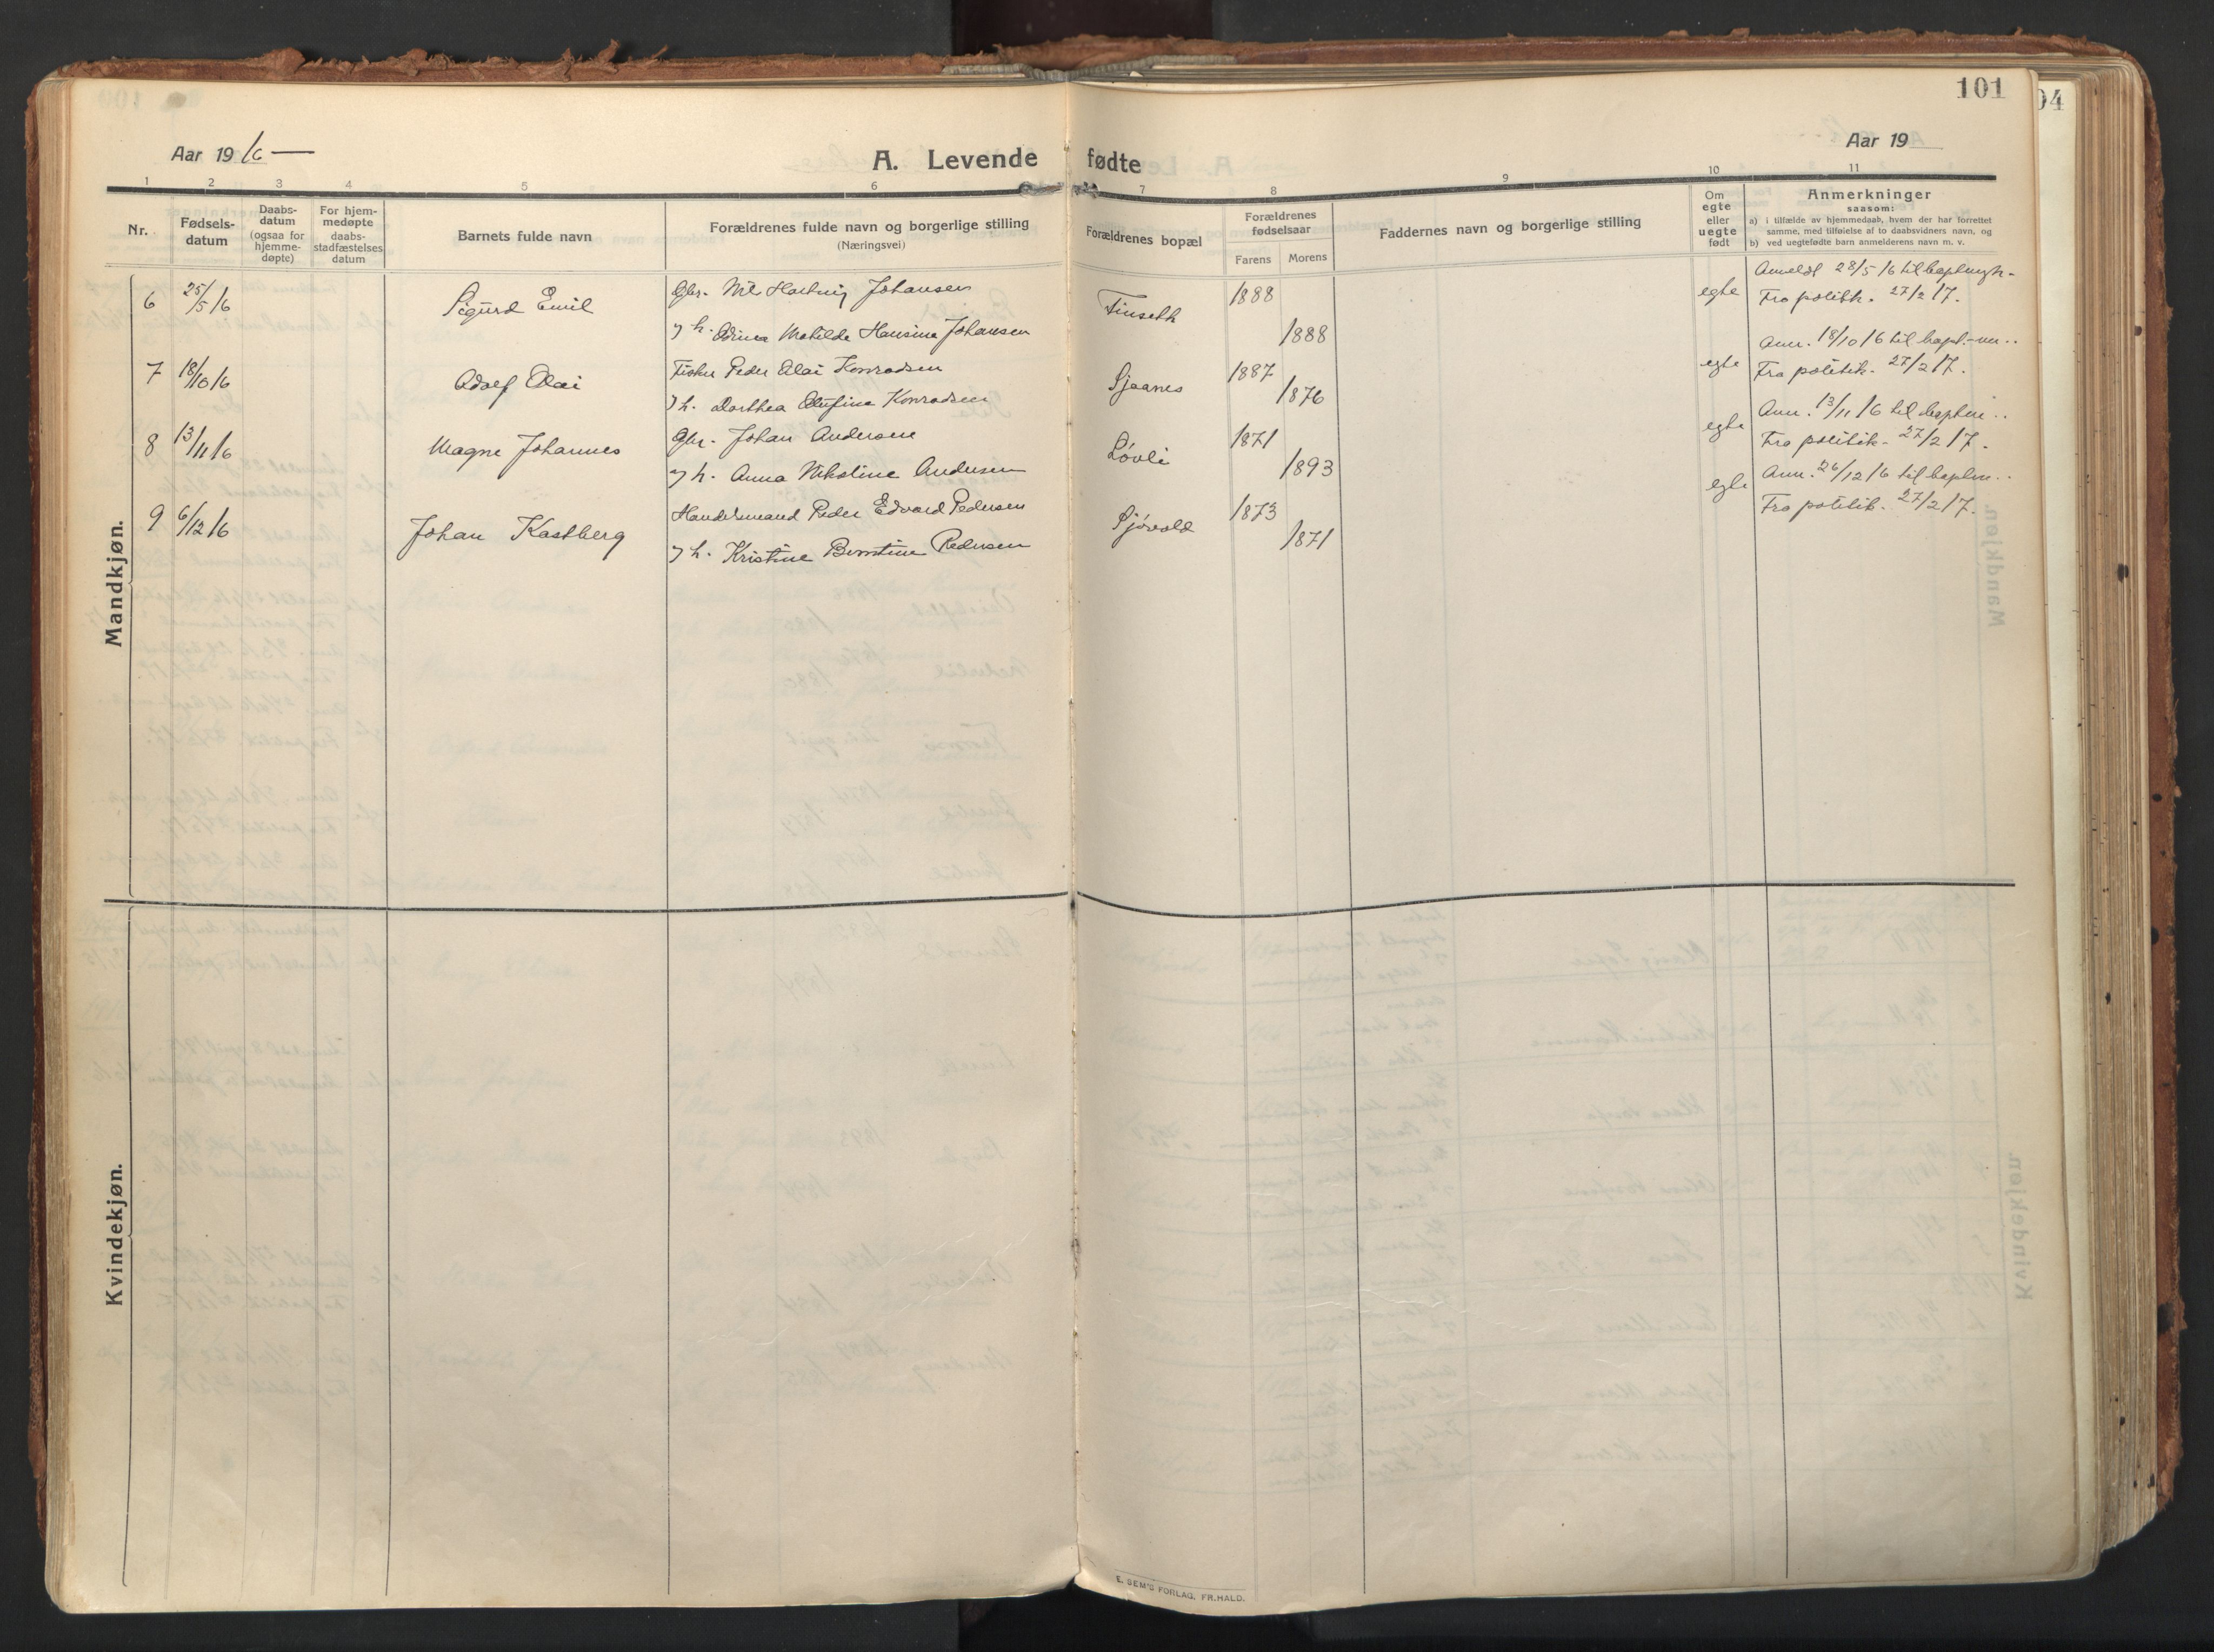 101
04
Aar 19 16 —
A. Levende fødte
Aar 19
1 2 3 4 5 6 7 8 9 10 11
Nr.
Fødsels-
datum
Daabs-
datum
(ogsaa for
hjemme-
døpte)
For hjem-
medøpte
daabs-
stadfæstelses
datum
Barnets fulde navn
Forældrenes fulde navn og borgerlige stilling
(Næringsvei)
Forældrenes bopæl
Forældrenes
fødselsaar
Farens Morens
Faddernes navn og borgerlige stilling
Om
egte
eller
uegte
født
Anmerkninger
saasom:
a) i tilfælde av hjemmedaab, hvem der har forrettet
samme, med tilføielse af to daabsvidners navn, og
b) ved uegtefødte barn anmelderens navn m. v.
Mandkjøn.
6 25/5 16 Sigurd Emil Gbr. Johansen Finseth 1888 egte Anmeldt 28/5 16 til
og h. Matilde Hansine Johansen 1888 Fra politik. 27/2 17.
7 18/10 16 Adolf Elai Fisker Peder Elai Konradsen Sjaanes 1887 egte Anm. 18/10 16 til
og h. Dorthea Olufine Konradsen 1876 Fra politik. 27/2 17.
8 13/11 16 Magne Johannes Gbr. Johan Andersen Løvli 1871 egte Anm. 13/11 16 til
og h. Anna Nikoline Andersen 1893 Fra politik. 27/2 17.
9 6/12 16 Johan Kastberg Handelsmand Peder Edvard Pedersen Sjøvold 1873 egte Anm. 26/12 16 til
og h. Kristine Berntine Pedersen 1871 Fra politik. 27/2 17.
Kvindekjøn.
E. SEM'S FORLAG, FR.HALD.